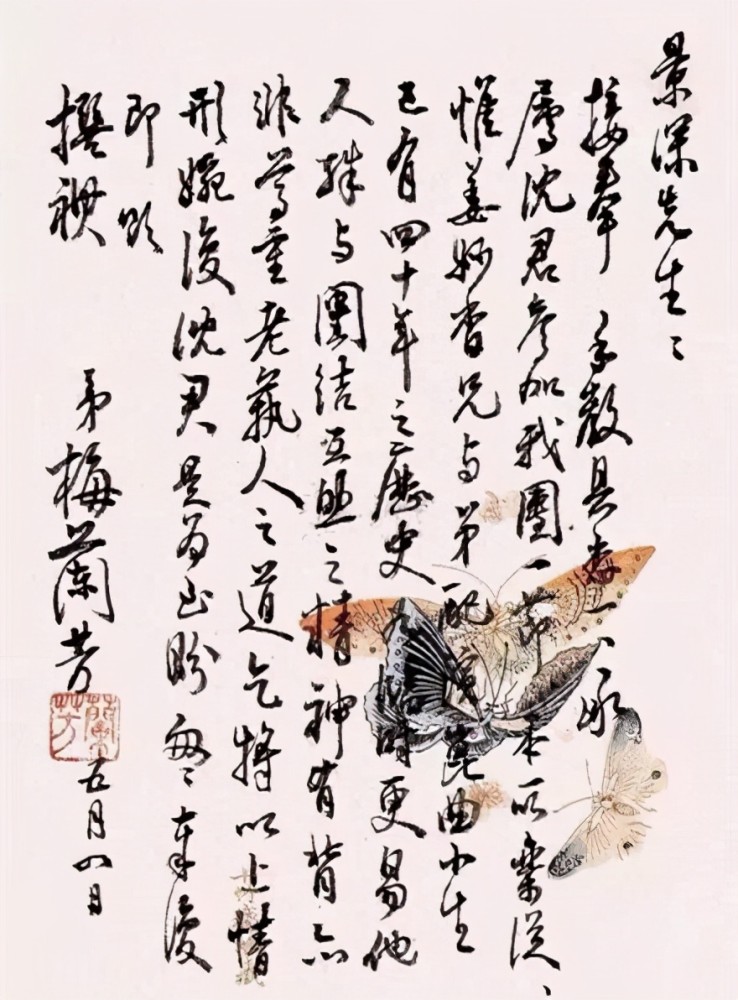 景深先生：
接奉 手教具悉一一承
屬沈君參加我團一節本所樂從、
惟姜妙香兄与弟配演崑曲小生
已有四十年之歷史如臨時更易他
人殊与團結互助之精神有背亦
非尊重老藝人之道乞將以上情
形婉復沈君是為至盼匆匆奉復
即頌
撰祺
弟梅蘭芳
蘭芳
五月四日